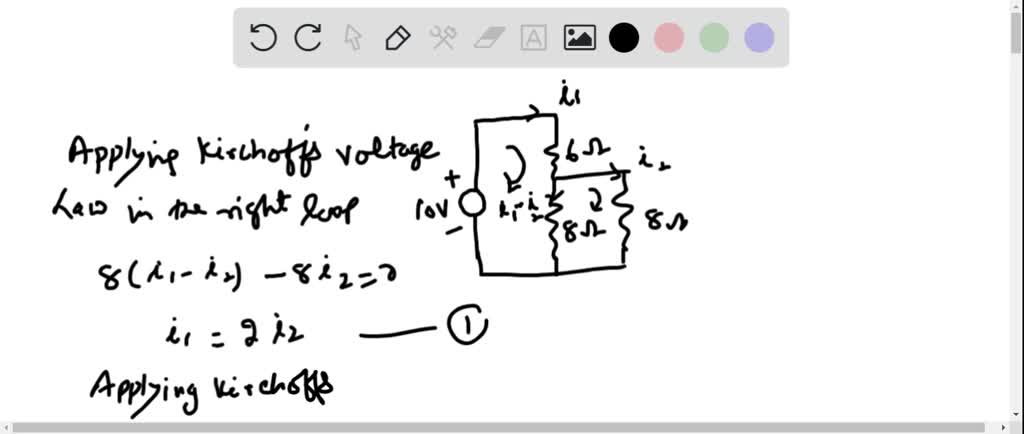 Applying Kirchoffs voltage
Law in the right loop
8(i₁ - i₂) - 8i₂ = 0
i₁ = 2i₂ —— ①
Applying Kirchoffs
i₁
6Ω
i₂
+
10V
-
i₁-i₂
8Ω
8Ω
A